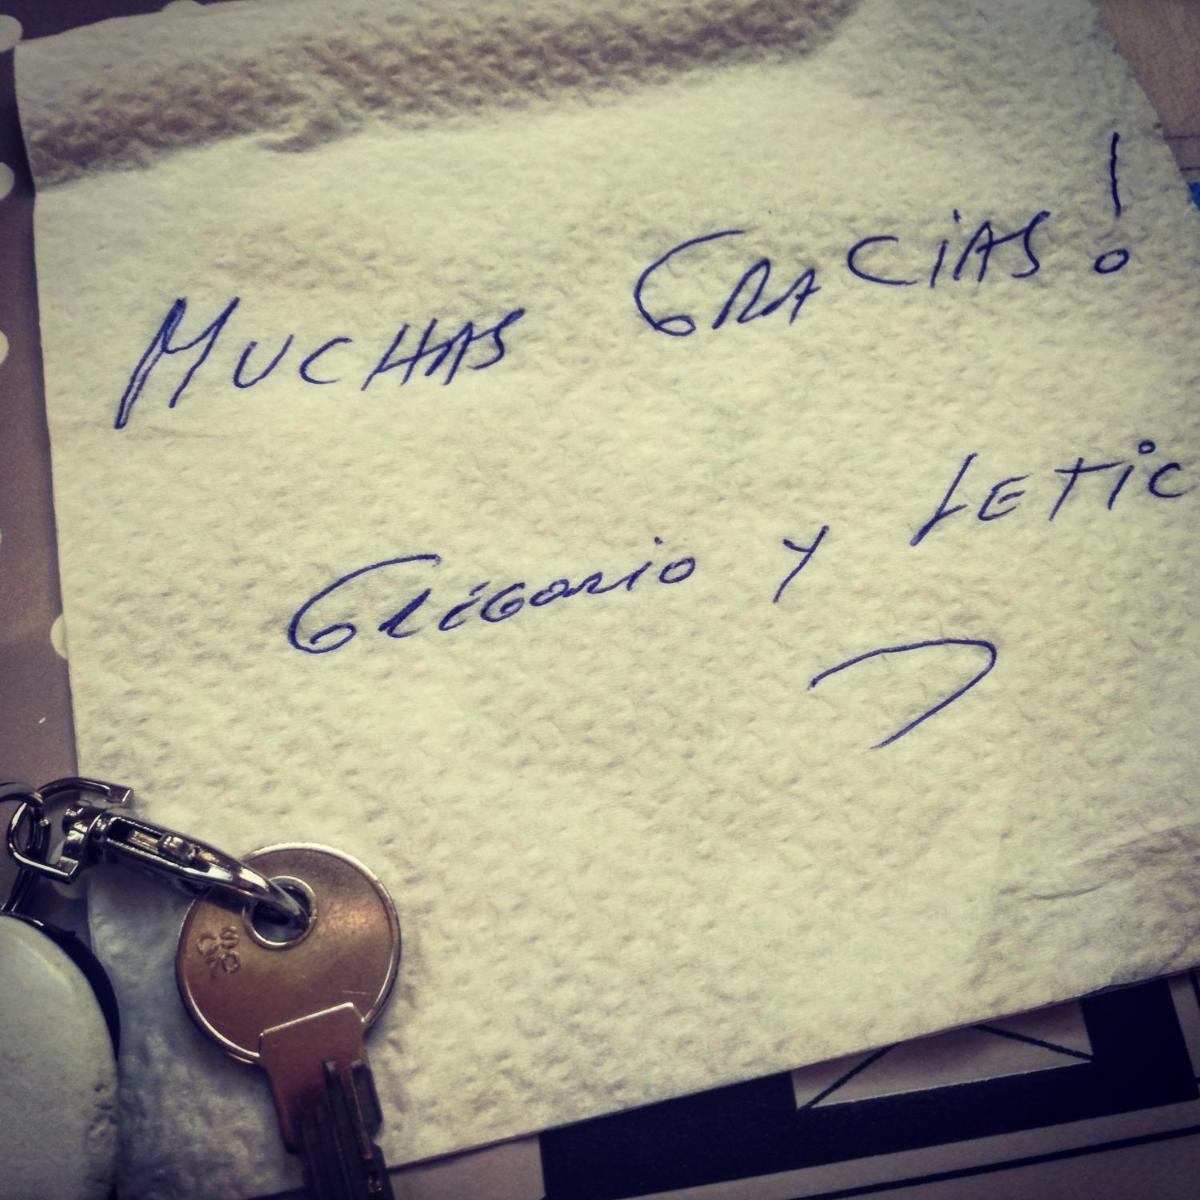 MUCHAS GRACIAS!
GREGORIO Y LETIC